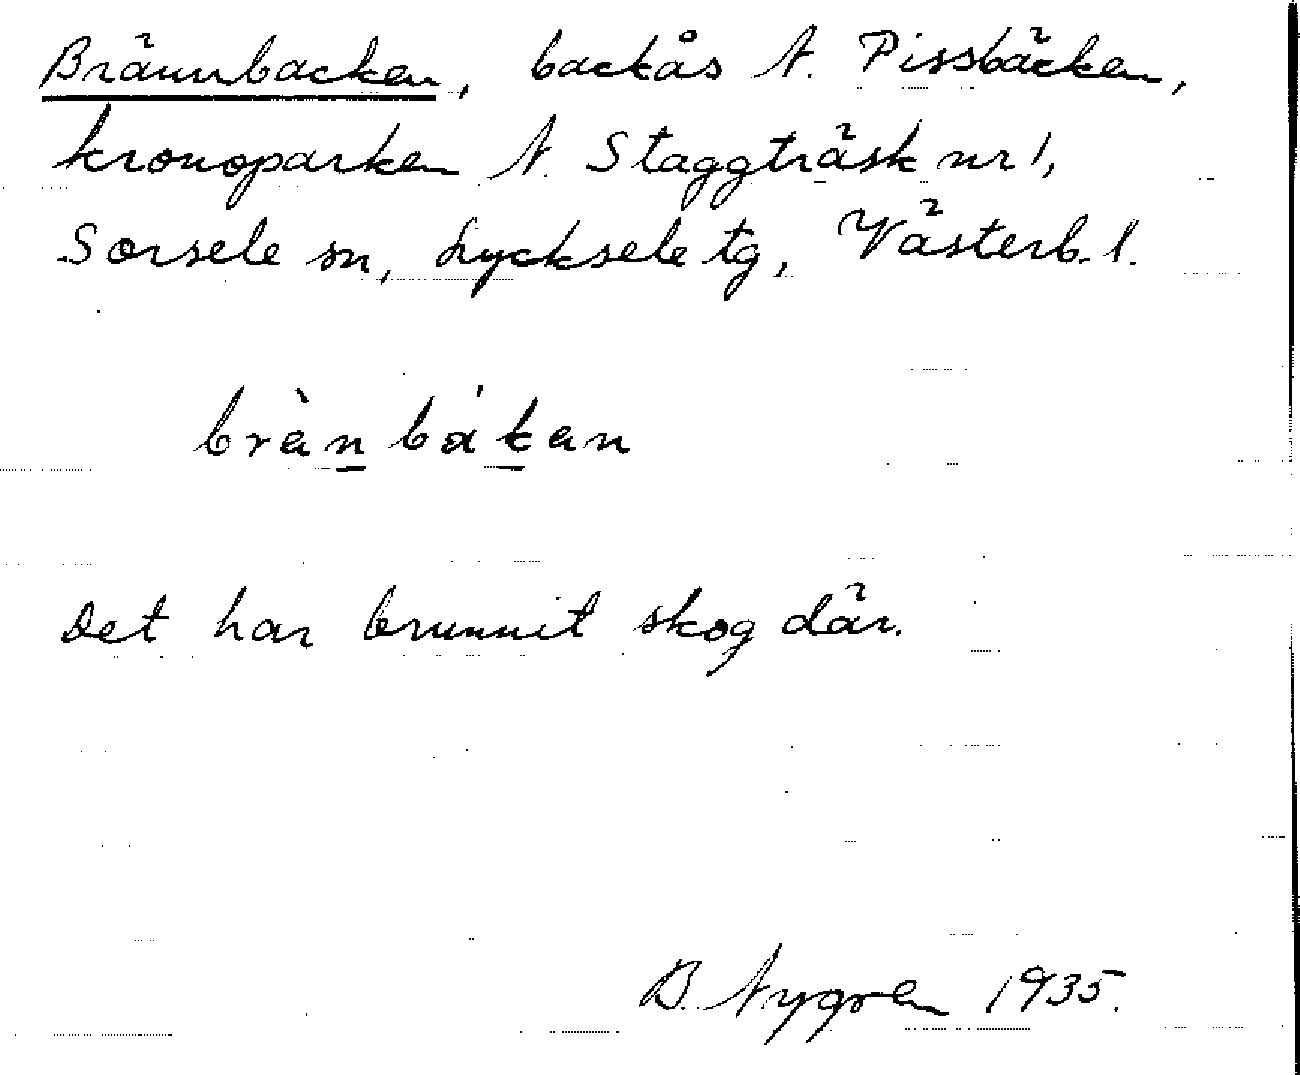 Brännbacken, backås N. Pissbäcken,
kronoparken N. Staggträsk nr 1,
Sorsele sn, Lycksele tg, Västerb. l.
brànbákan
Det har brunnit skog där.
B. Nygren 1935.